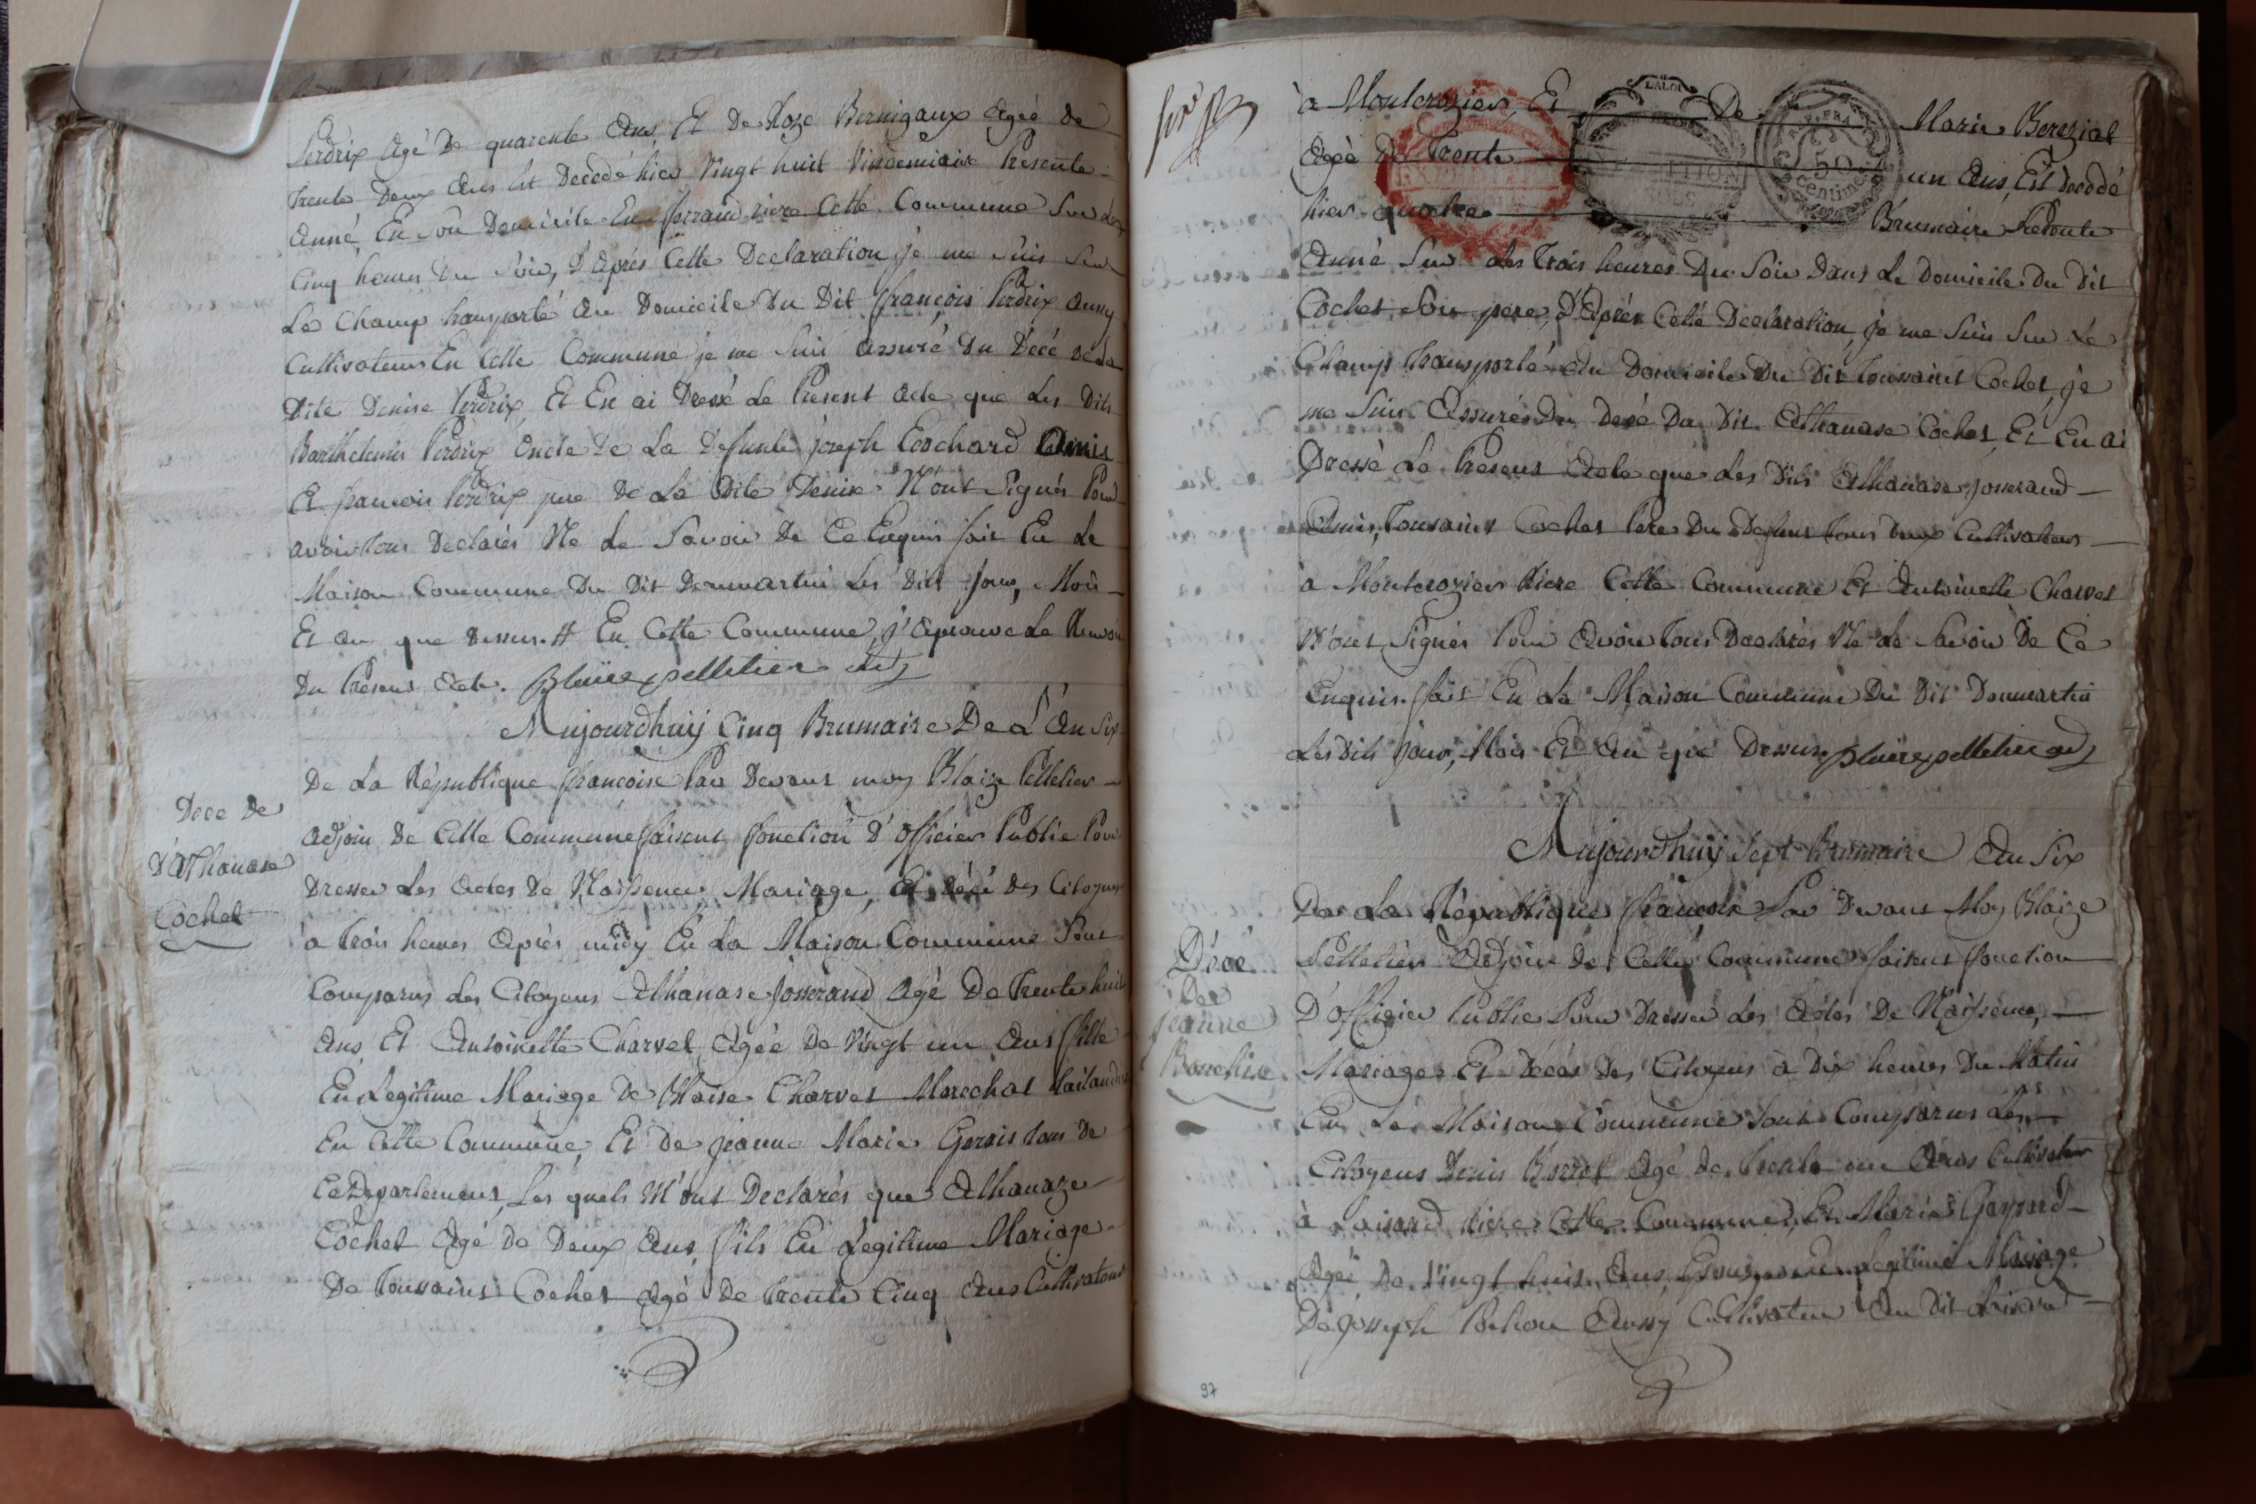 Perdrix Agé De quarente Ans, Et De Roze Bernigaux Agée de
Trente Deux Ans Est Decedé hier Vingt huit Vindemiaire Presente
Anné En Son Domicile En ferrand riere Cette Commune Sur Les
Cinq heures Du Soir, D'après Cette Declaration je me Suis Sur
Le Champ transporté Au Domicile Du Dit françois Perdrix Aussy
Cultivateur En Cette Commune je me Suis assuré Du Décé de La
Dite Denise Perdrix Et En ai Dressé Le Present Acte que Les Dits
Barthelemis Perdrix Oncle De La Defunte joseph Cochard Amis
Et francois Perdrix pere De La Dite Denise N'ont Signés Pour
avoir tous Declarés Ne Le Savoir De Ce Enquis fait En La
Maison Commune Du Dit Dommartin Les Dits Jour, Mois
Et An que Dessus. # En Cette Commune, J'Aprouve Le Renvoi
Du Present Acte. Blaise pelletier adj
Aujourdhuij Cinq Brumaire De L'An Six
De La Republique francoise Par Devant moy Blaize Pelletier
adjoin De Cette Commune faisent fonction D'Officier Public Pour
Dresser Les Actes De Naissence, Mariage, Et décé des Citoyens
Dece De
D'Athanase
Cochet
à Trois heures Après midy En La Maison Commune Sont
Comparus Les Citoyens Athanase Josserand Agé De Trente huit
Ans, Et Antoinette Charvet Agée De Vingt un Ans fille
En Legitime Mariage De Blaise Charvet Marechal tailandier
En Cette Commune, Et De jeanne Marie Gervais tous De
Ce Departement, Les quels M'ont Declarés que Athanaze
Cochet Agé De Deux Ans fils En Legitime Mariage
De Toussaint Cochet Agé De trente Cinq Ans Cultivateur
à Montcrozier, Et De Marie Berezial
Agée De Trente un Ans, Est Decedé
hier quatre Brumaire Presente
Anné Sur Les Trois heures Du Soir Dans Le Domicile Du Dit
Cochet Son pere, D'Après Cette Declaration, je me Suis Sur Le
Champ Transporté Au Domicile Du Dit Toussaint Cochet, je
me Suis Assurés Du Decé Du Dit Athanase Cochet, Et En ai
Dressé Le Present Acte que Les Dits Athanase Josserand
Amis, Toussaint Cochet Pere Du Defunt tous Deux Cultivateurs
à Montcrozier Riere Cette Commune Et Antoinette Charvet
N'ont Signés Pour Avoir Tous Declarés Ne Le Savoir De Ce
Enquis. fait En La Maison Commune Du Dit Dommartin
Les Dits Jour, Mois Et An que Dessus Blaise pelletier adj
50 centimes
Aujourdhuij Sept Brumaire An Six
De La Republique francoise Par Devant Moy Blaize
Pelletier Adjoin De Cette Commune faisent fonction
Décé
De
jeanne
D'officier Public Pour Dresser Les Actes De Naissence,
Mariage Et Décés Des Citoyens à Dix heures Du Matin
En La Maison Commune Sont Comparus Les
Citoyens Denis Borrel Agé De Trente un Ans Cultivateur
à Loisard Riere Cette Commune, Et Marie
Agée De Vingt huit Ans, Legitime Mariage
De Joseph Aussy Cultivateur Au Dit Loisard
97